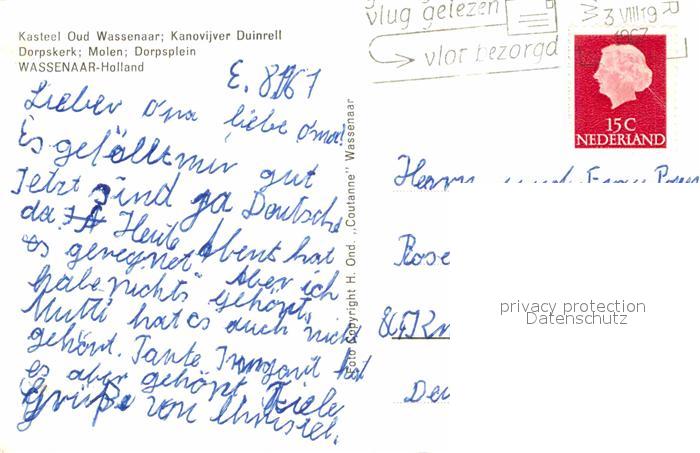 Kasteel Oud Wassenaar; Kanovijver Duinrell
Dorpskerk; Molen; Dorpsplein
WASSENAAR-Holland
Lieber Opa, liebe Oma!
Es gefällt mir gut
Jetzt sind ja Deutsche
da. Heute Abent hat
es geregnet. Aber ich
habe nichts gehört,
Mutti hat es auch nicht
gehört. Tante Irmgart hat
es aber gehört. Viele
Grüße von Christel.
Foto Copyright H. Ond. „Coutanne" Wassenaar
vlug gelezen
vlor bezorgd
3 VIII 19
1967
15 C
NEDERLAND
Herrn und Frau
Rose
privacy protection
Datenschutz